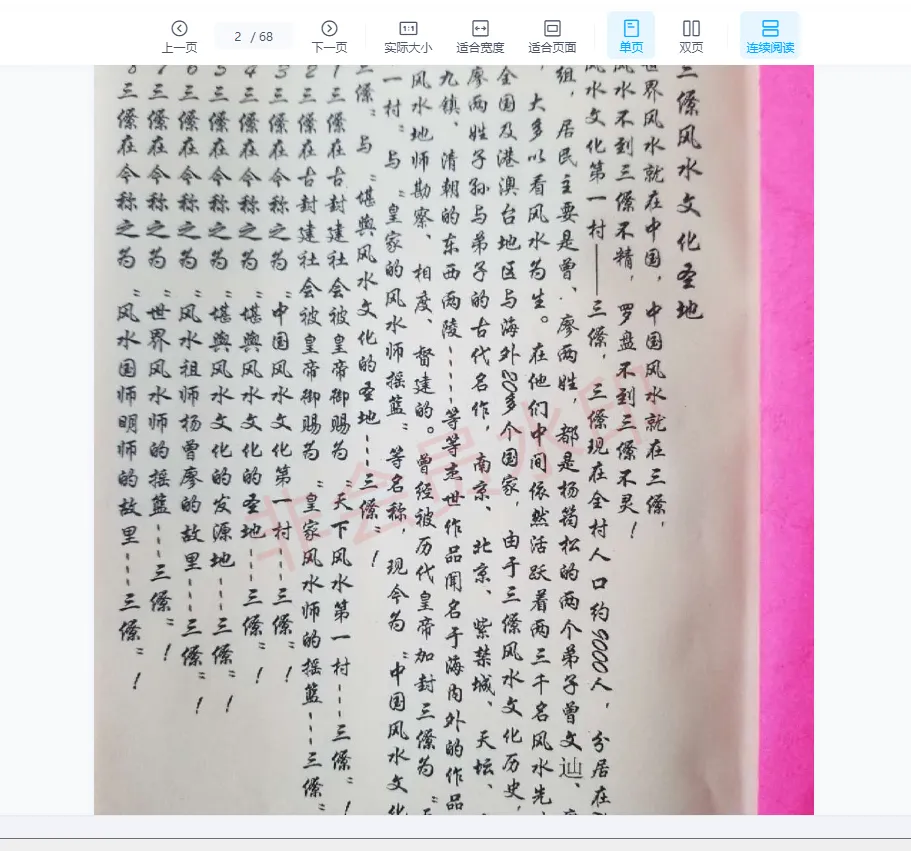 上一页
2 / 68
下一页
1:1
实际大小
适合宽度
适合页面
单页
双页
连续阅读
三僚风水文化圣地
世界风水就在中国，中国风水就在三僚，
风水不到三僚不精，罗盘不到三僚不灵！
风水文化第一村——三僚，三僚现在全村人口约9000人，分居在
组，居民主要是曾、廖两姓，都是杨筠松的两个弟子曾文辿、
，大多以看风水为生。在他们中间依然活跃着两三千名风水先
全国及港澳台地区与海外20多个国家，由于三僚风水文化历史，
廖两姓子孙与弟子的古代名作，南京、北京、紫禁城、天坛、
九镇、清朝的东西两陵……等等杰世作品闻名于海内外的作品
风水地师勘察、相度、督建的。曾经被历代皇帝加封三僚为“
一村”与“皇家的风水师摇篮”等名称，现今为“中国风水文化
三僚”与“堪舆风水文化的圣地……三僚”！
1三僚在古封建社会被皇帝御赐为“天下风水第一村……三僚”！
2三僚在古封建社会被皇帝御赐为“皇家风水师的摇篮……三僚”
3三僚在今称之为“中国风水文化第一村……三僚”！
4三僚在今称之为“堪舆风水文化的圣地……三僚”！
5三僚在今称之为“堪舆风水文化的发源地……三僚”！
6三僚在今称之为“风水祖师杨曾廖的故里……三僚”！
7三僚在今称之为“世界风水师的摇篮……三僚”！
8三僚在今称之为“风水国师明师的故里……三僚”！
非会员水印